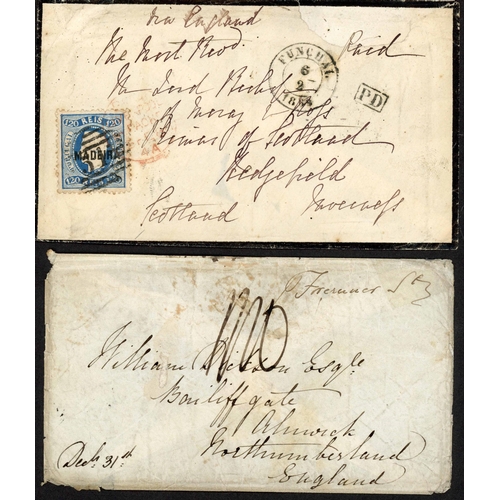 Via England
The Most Revd. Paid
The Lord Bishop
of Moray & Ross
Primus of Scotland
Hedgefield
Scotland Inverness
FUNCHAL
6
2
PD
120 REIS 120
MADEIRA
Steamer
William Esqre.
Bailiffgate
Alnwick
Northumberland
England
Decr. 31st.